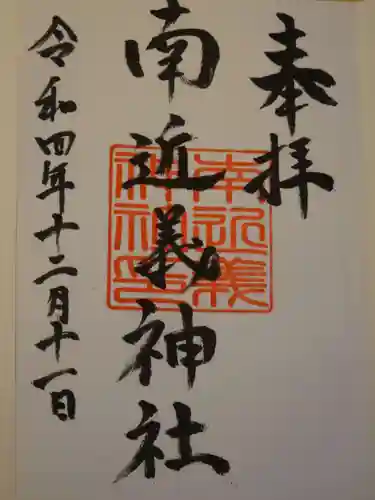 奉拝
南近義神社
南近義
神社印
令和四年十二月十一日